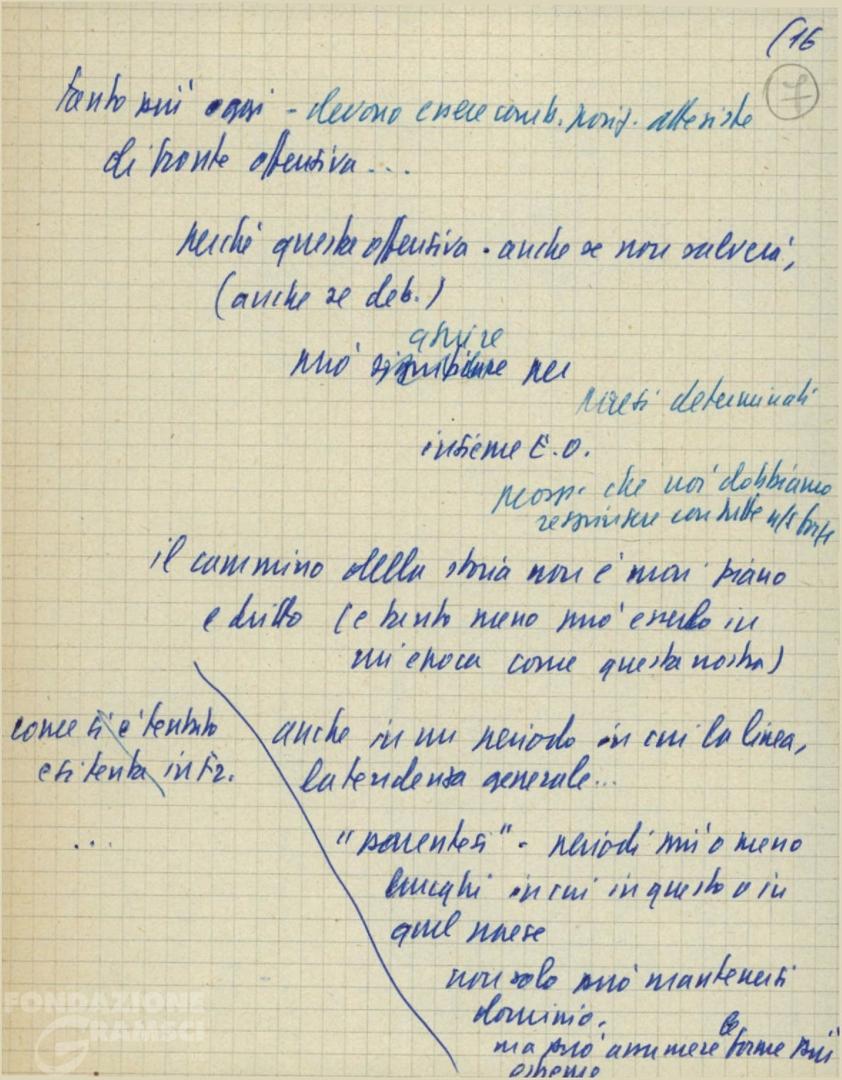 (16
7
tanto più oggi - devono essere comb. posiz. attesiste
di fronte offensiva...
perché questa offensiva - anche se non salverà,
(anche se deb.)
aprire
può significare per
paesi determinati
insieme E.O.
prosp. che noi dobbiamo
respingere con tutte n/s forze
il cammino della storia non è mai piano
e dritto (e tanto meno può esserlo in
un'epoca come questa nostra)
come si è tentato
e si tenta in Fr.
...
anche in un periodo in cui la linea,
la tendenza generale...
"parentesi" - periodi più o meno
lunghi in cui in questo o in
quel paese
non solo può mantenersi
dominio,
ma può assumere le forme più
FONDAZIONE
GRAMSCI